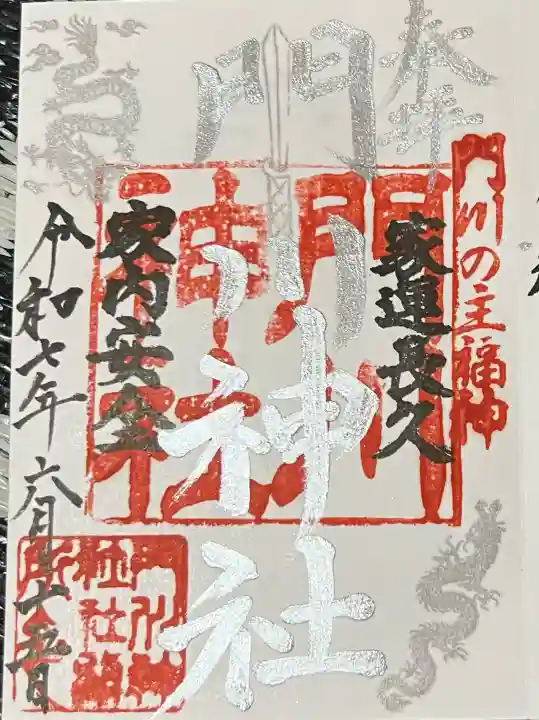 奉拝
門川の主福神
家運長久
門川神社
家内安全
令和七年六月十五日